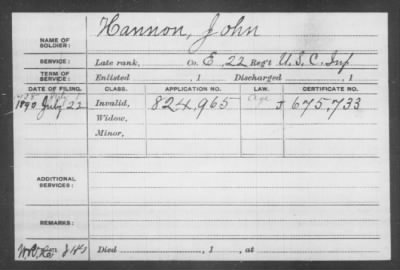 NAME OF SOLDIER: Hannon, John
SERVICE: Late rank, Co. E, 22 Reg't U.S.C. Inf
TERM OF SERVICE: Enlisted , 1 Discharged , 1
DATE OF FILING. CLASS. APPLICATION NO. LAW. CERTIFICATE NO.
1890 July 22 Invalid, 824,965 J 675,733
Widow,
Minor,
ADDITIONAL SERVICES:
REMARKS:
Died , 1 , at